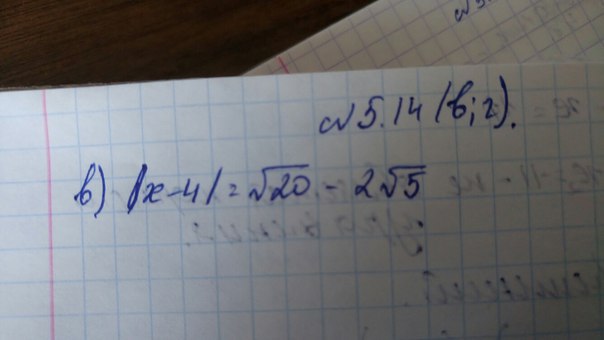 №5.14 (в;г).
в) |x-4| = √20 - 2√5